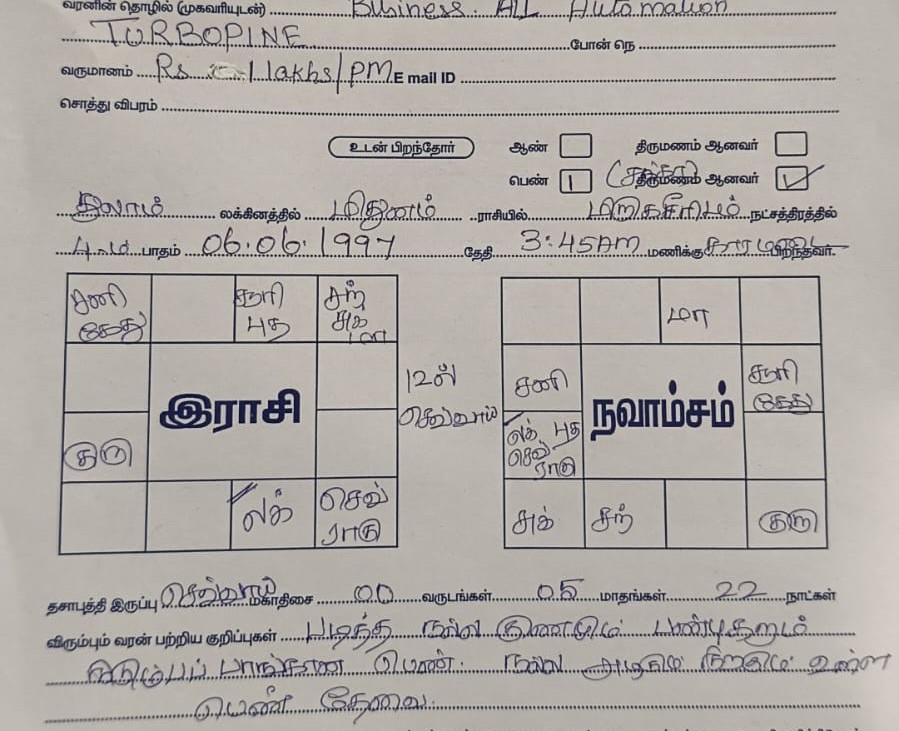 வரனின் தொழில் (முகவரியுடன்) Business. ALL Automation
TURBOPINE போன் நெ
வருமானம் Rs 1 lakhs/PM E mail ID
சொத்து விபரம்
உடன் பிறந்தோர் ஆண் திருமணம் ஆனவர்
பெண் 1 திருமணம் ஆனவர் ✓
துலாம் லக்கினத்தில் மிதுனம் ராசியில் மிருகசீரிஷம் நட்சத்திரத்தில்
4-ம் பாதம் 06.06.1997 தேதி 3:45AM மணிக்கு பிறந்தவர்.
சனி கேது
சூரி புத
சந் சுக் மா
குரு
இராசி
லக்
செவ் ராகு
12ல் செவ்வாய்
மா
சனி
சூரி கேது
லக் புத செவ் ராகு
நவாம்சம்
சுக்
சந்
குரு
தசாபுத்தி இருப்பு செவ்வாய் மகாதிசை 00 வருடங்கள் 05 மாதங்கள் 22 நாட்கள்
விரும்பும் வரன் பற்றிய குறிப்புகள் படித்த நல்ல குணமும் பண்புதரும்
குடும்பப் பாங்கான பெண். நல்ல அழகும் நிறமும் உள்ள
பெண் தேவை.